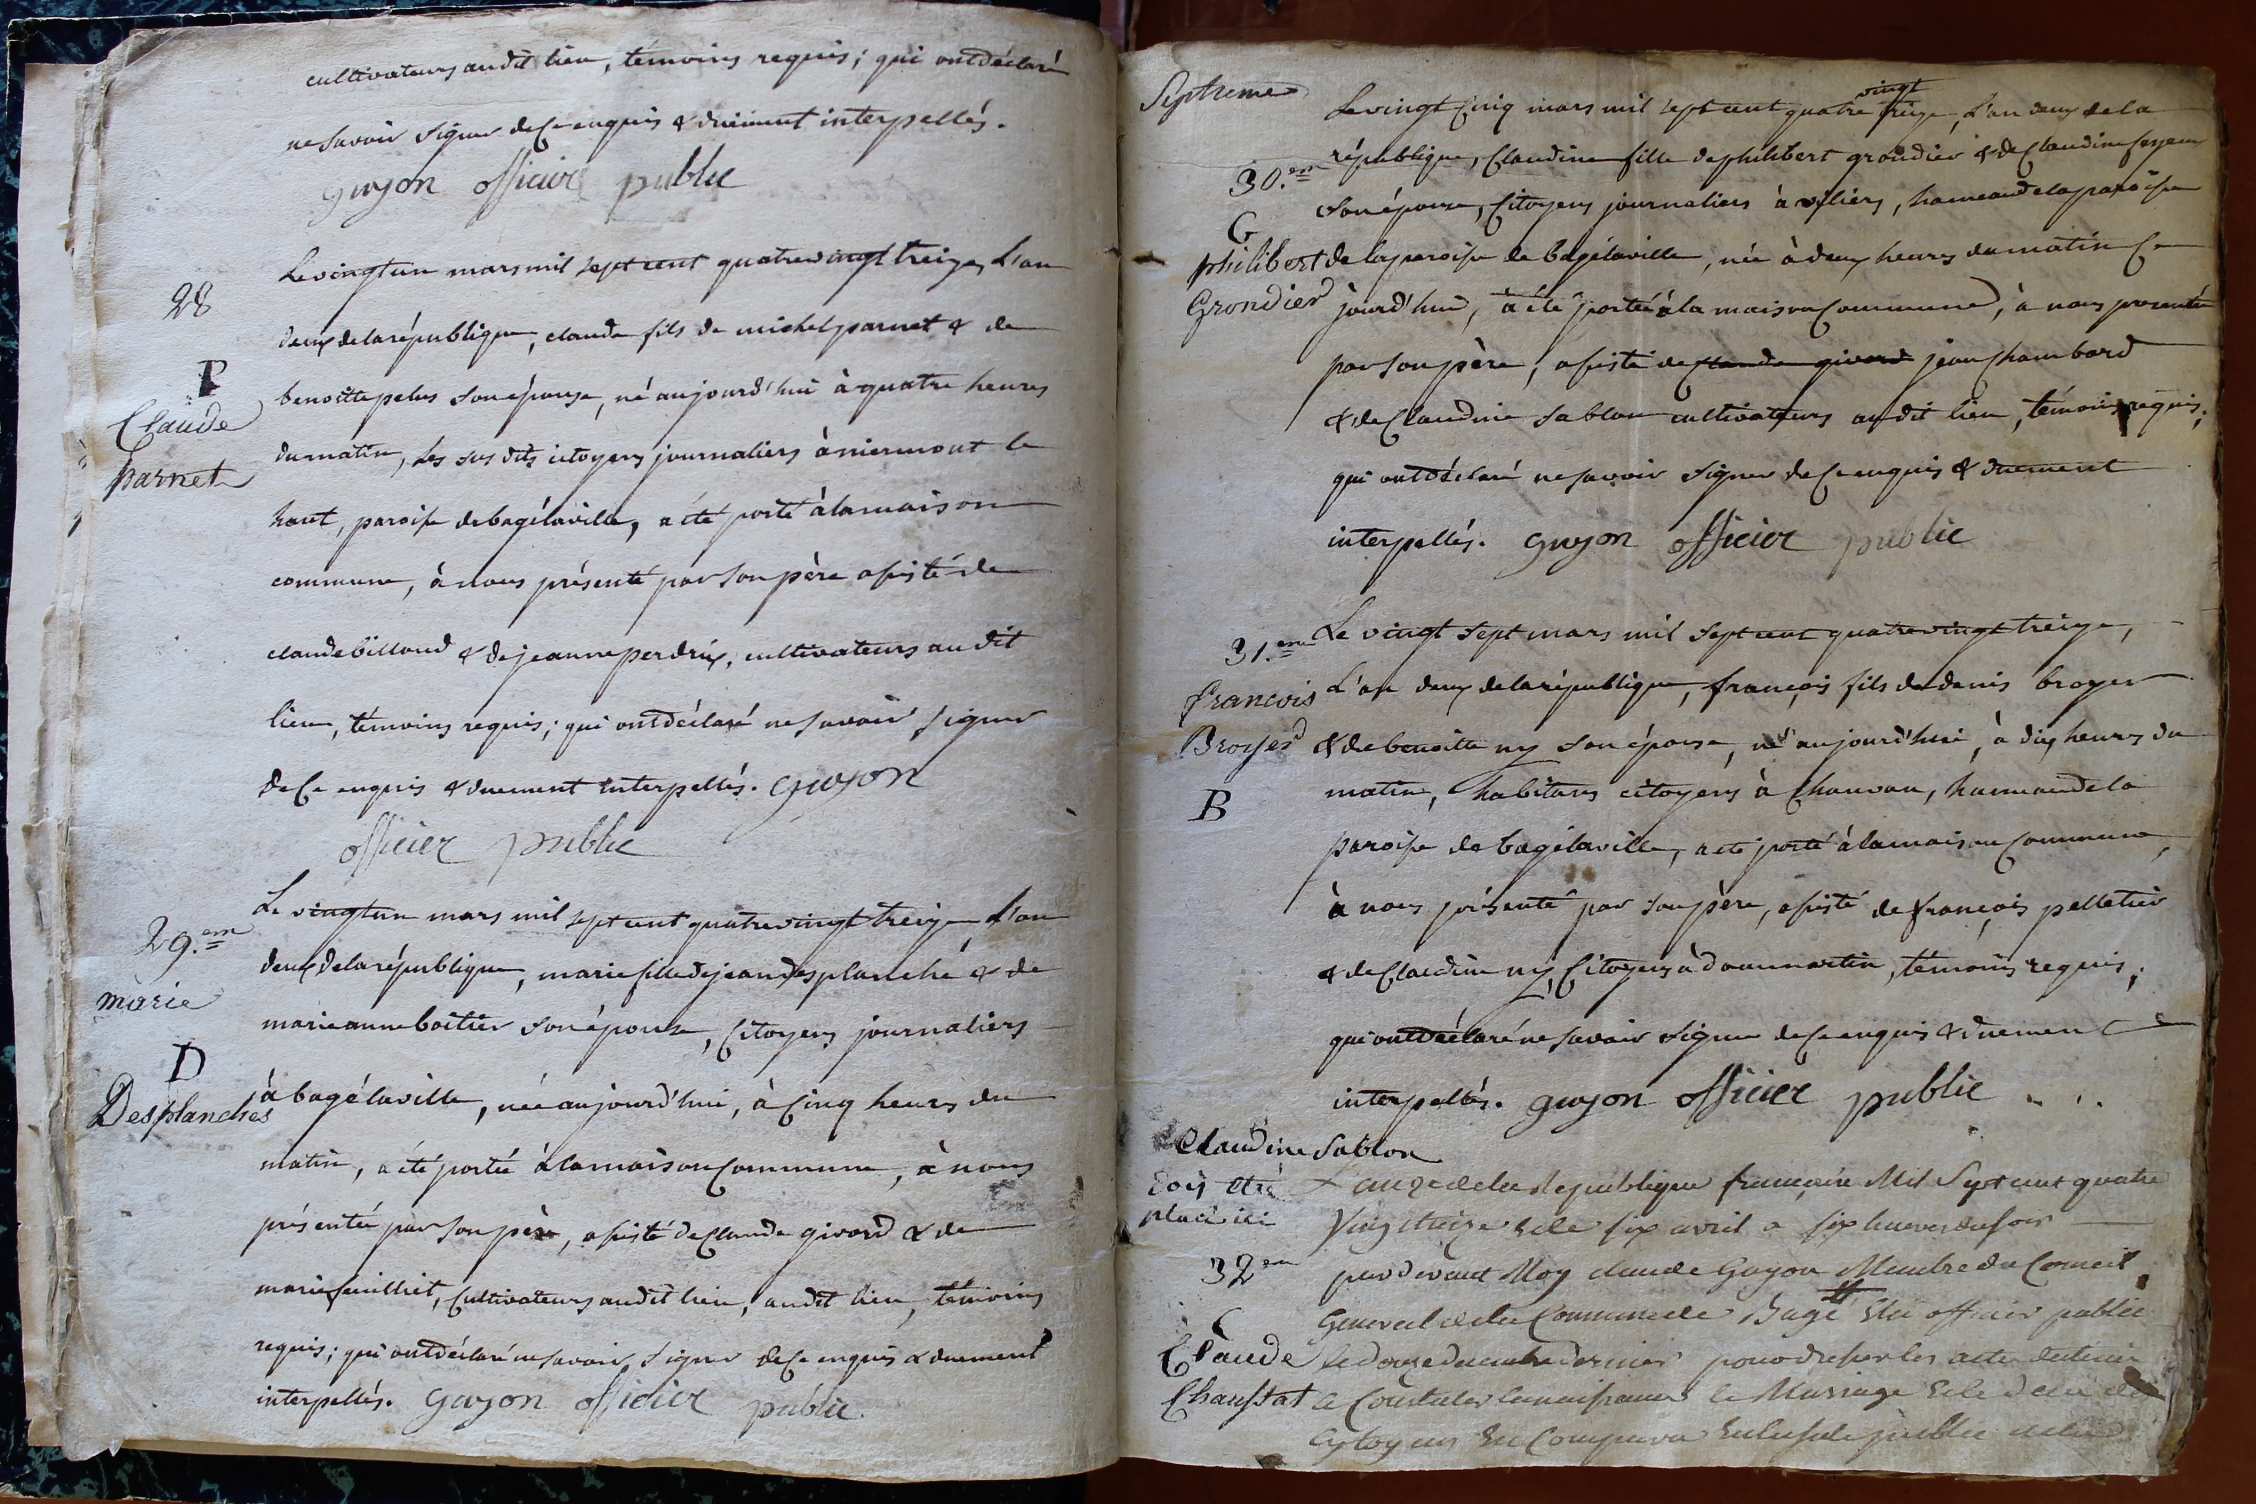 cultivateurs audit lieu, témoins requis; qui ont déclaré
ne savoir signer de ce enquis & duement interpellés.
guyon officier public
28
P
Claude
parnet
Le vingt un mars mil sept cent quatrevingt treize, L'an
deux de la république, claude fils de michel parnet & de
benoitte pelus son épouse, né aujourd'hui à quatre heures
du matin, les sus dits citoyens journaliers à niermont le
haut, paroisse de bagélaville, a été porté à la maison
commune, à nous présenté par son père assisté de
claude billoud & de jeanne perdrix, cultivateurs audit
lieu, témoins requis; qui ont déclaré ne savoir signer
de ce enquis & duement interpellés. guyon
officier public
29.em
marie
D
Desplanches
Le vingt un mars mil sept cent quatrevingt treize L'an
deux de la république, marie fille de jean desplanché & de
marieanne boitier son épouse, Citoyens journaliers
à bagélaville, née aujourd'hui, à Cinq heures du
matin, a été portée à la maison Commune, à nous
présentée par son père, assisté de Claude givord & de
marie, Cultivateurs audit lieu, audit lieu, témoins
requis; qui ont déclaré ne savoir signer de ce enquis & duement
interpellés. guyon officier public.
Septieme
30.em
G
philibert
Grondier
Le vingt Cinq mars mil sept cent quatre vingt treize, L'an deux de la
république, Claudine fille de philibert grondier & de Claudine
son épouse, Citoyens journaliers à, hameau de la paroisse
de la paroisse de bagélaville, née à deux heures du matin Ce
jourd'hui, à été portée à la maison Commune, à nous presentée
par son père, assisté de Claude givord jean Chambard
& de Claudine Sablon cultivateurs audit lieu, témoins requis;
qui ont déclaré ne savoir signer de Ce enquis & duement
interpellés. guyon officier public
31.em
francois
Broyer
B
Le vingt sept mars mil sept cent quatrevingt treize,
L'an deux de la république, françois fils de denis broyer
& de benoitte ny son épouse, né aujourd'hui, à dix heures du
matin, habitans citoyens à Chanvau, hameau de la
paroisse de bagélaville, a été porté à la maison Commune,
à nous présenté par son père, assisté de françois pelletier
& de Claudine ny, Citoyens à dommartin, témoins requis;
qui ont déclaré ne savoir signer de Ce enquis & duement
interpellés. guyon officier public
Claudine Sablon
doit être
placé ici
32em
C
Claude
Chanstat
L'an 2e de la Republique francaise Mil Sept cent quatre
Vingt treize & le six avril a six heures du soir
pardevant Moy claude Guyon Membre du Conseil
General de la Commune de Bagé Elu officier public
le douze decembre dernier pour dresser les actes destinés
a Constater les naissances le Mariage & le deces des
Cytoyens Est Comparu En la sale publique de la